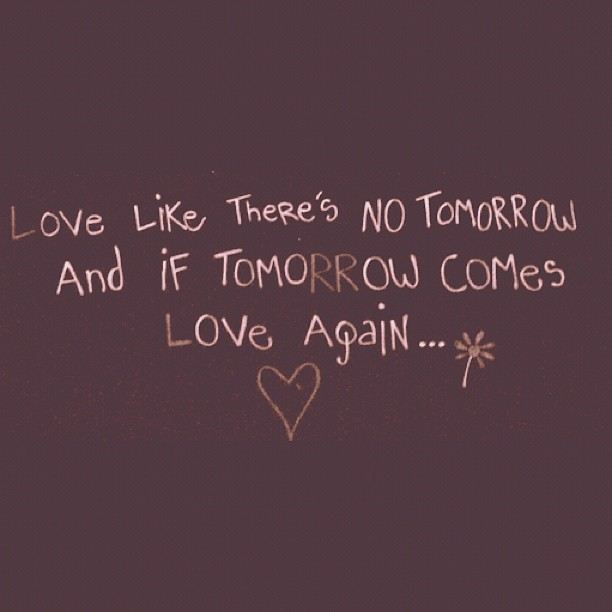 Love Like There's NO TOMORROW
And iF TOMORROW COMes
LOVe Again...